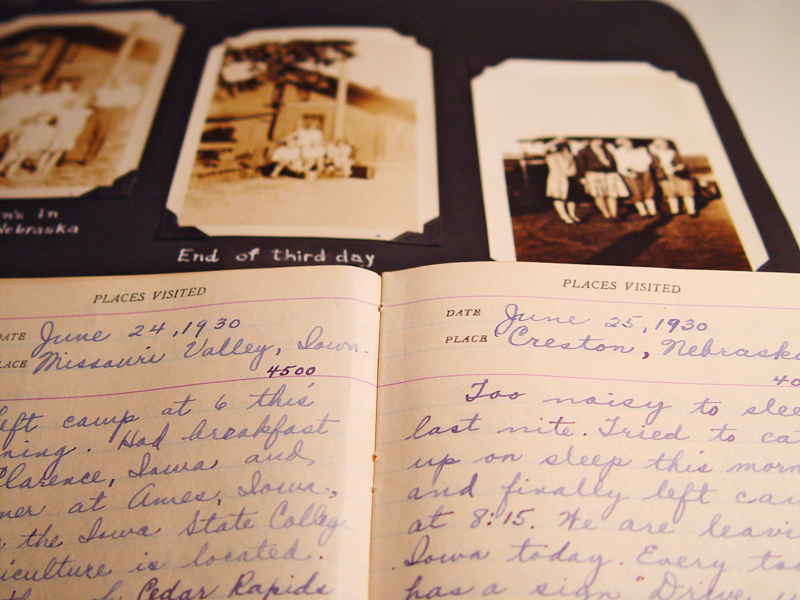 in
Nebraska
End of third day
PLACES VISITED
DATE June 24, 1930
PLACE Missouri Valley, Iowa.
4500
left camp at 6 this
Had breakfast
Clarence, Iowa and
at Ames, Iowa,
the Iowa State College
is located.
Cedar Rapids
PLACES VISITED
DATE June 25, 1930
PLACE Creston, Nebraska
40
Too noisy to
last nite. Tried to
up on sleep this
and finally left
at 8:15. We are
Iowa today. Every
has a sign "Drive